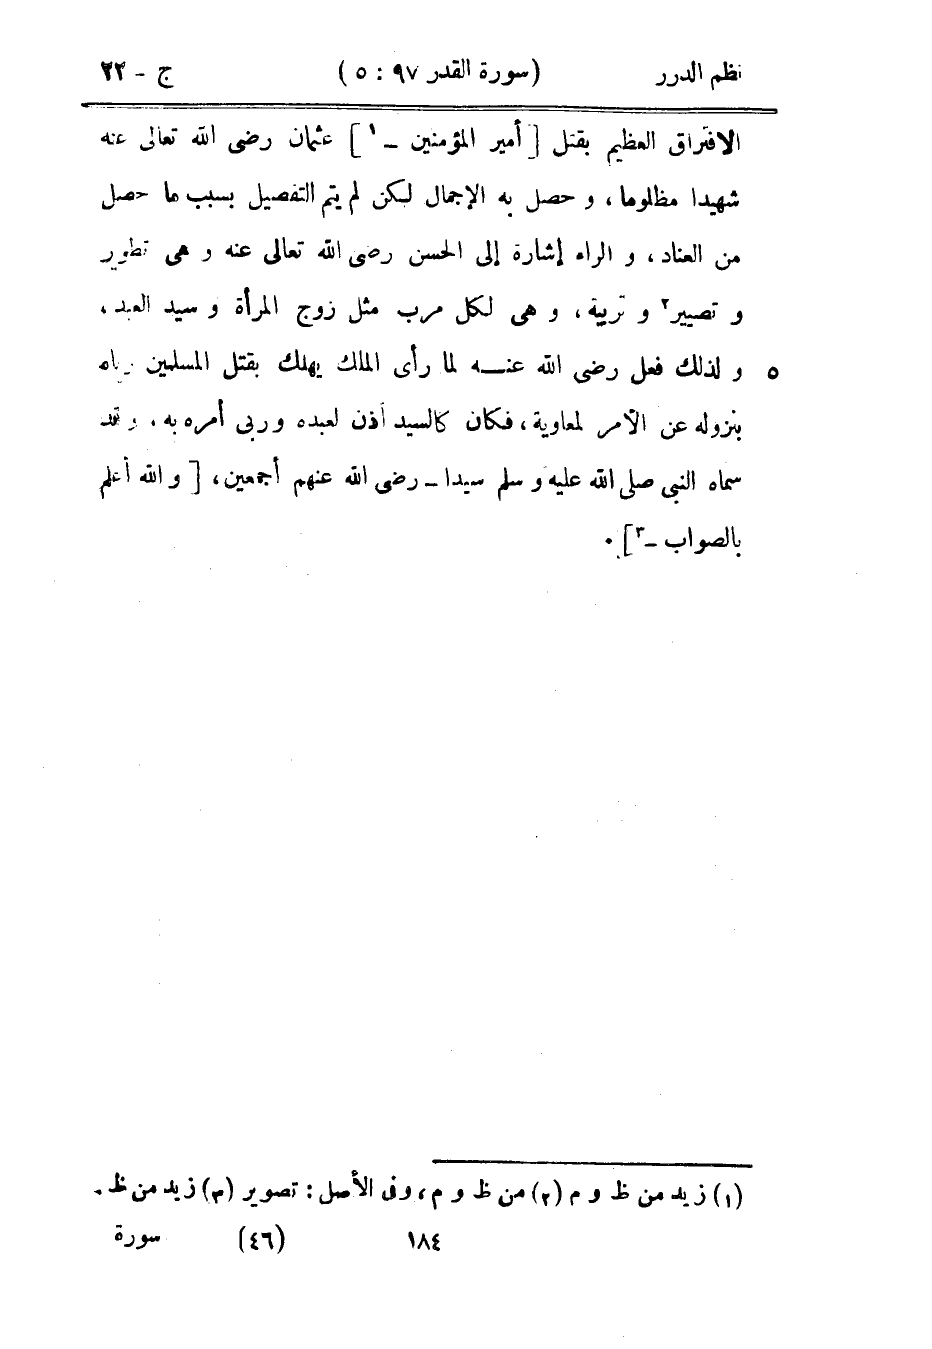 نظم الدرر (سورة القدر ٩٧ : ٥) ج - ٢٢
الافتراق العظيم بقتل [أمير المؤمنين ــ ١] عثمان رضى الله تعالى عنه
شهيدا مظلوما، و حصل به الإجمال لكن لم يتم التفصيل بسبب ما حصل
من العناد، و الراء إشارة إلى الحسن رضى الله تعالى عنه و هى تطوير
و تصيير٢ و تربية، و هى لكل مرب مثل زوج المرأة و سيد العبد،
٥ و لذلك فعل رضى الله عنـــه لما رأى الملك يهلك بقتل المسلمين رباه
بنزوله عن الآمر لمعاوية، فكان كالسيد أذن لعبده و ربى أمره به، و قد
سماه النبى صلى الله عليه و سلم سيدا ــ رضى الله عنهم أجمعين، [و الله أعلم
بالصواب ــ٣].
(١) زيد من ظ و م (٢) من ظ و م، وفى الأصل : تصوير (٣) زيد من ظ.
١٨٤ (٤٦) سورة